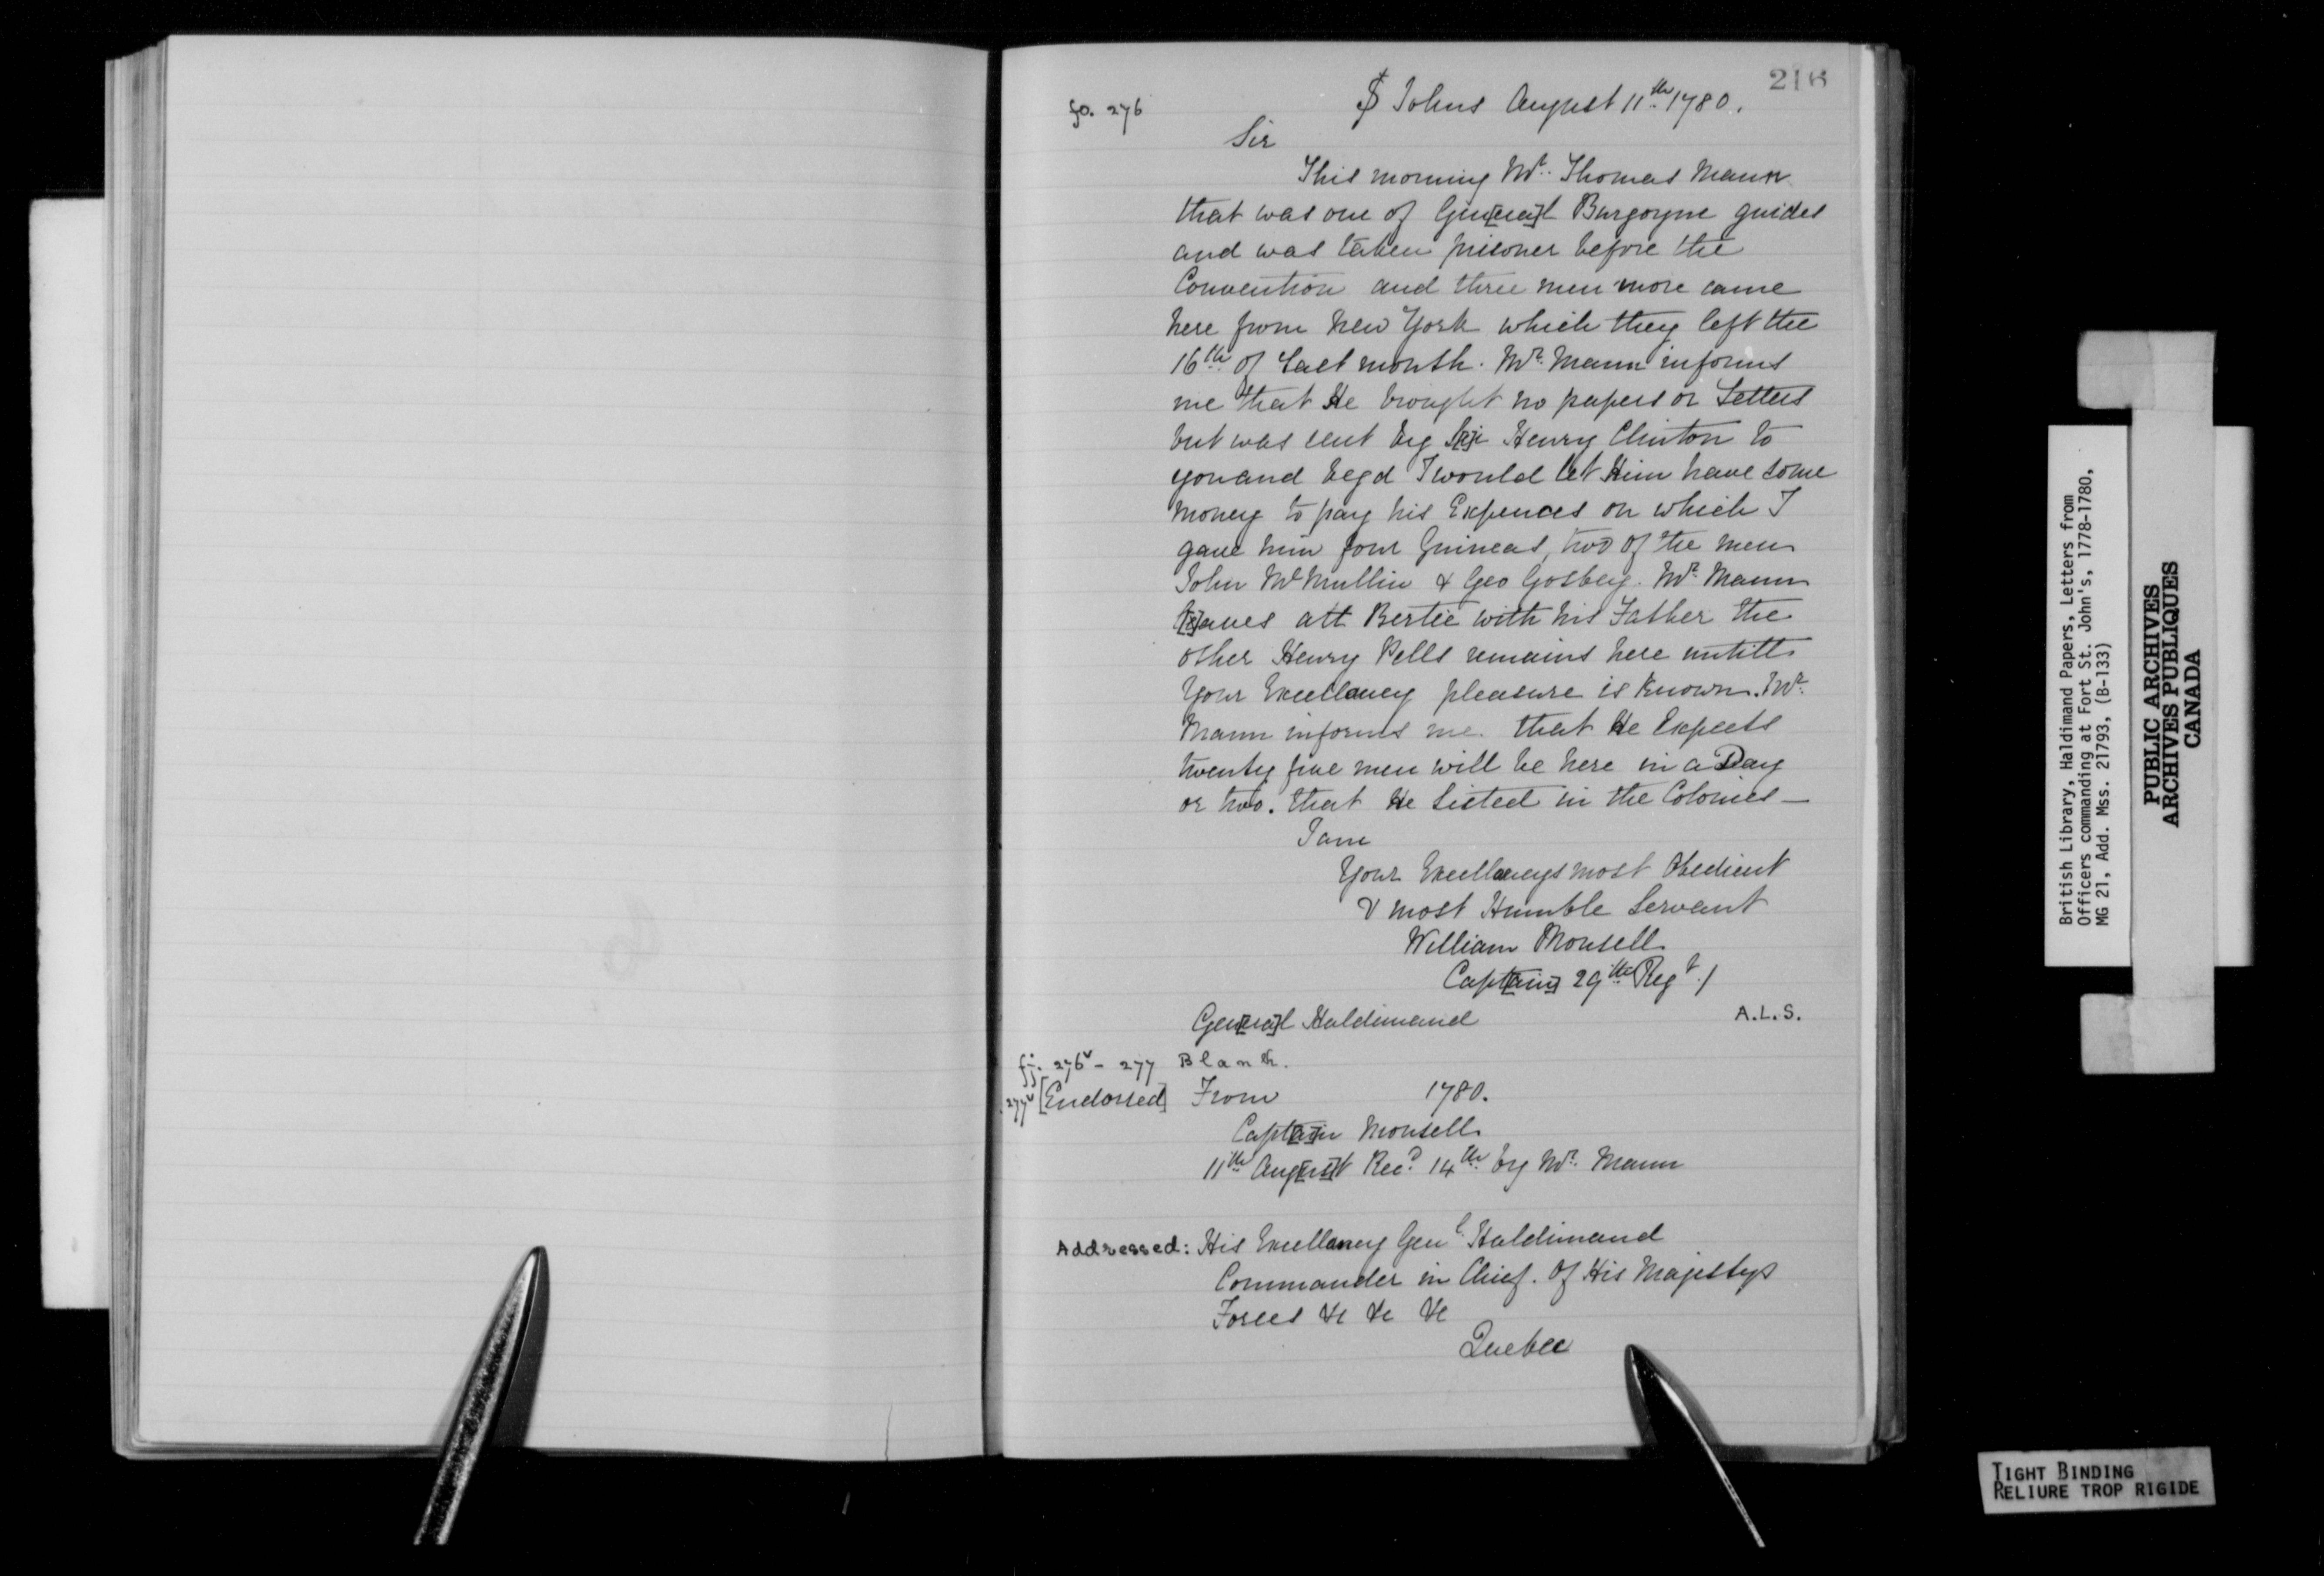 216
fo. 276
St Johns August 11th 1780.
Sir
This morning Mr. Thomas Mann
that was one of Gen[era]l Burgoyne guides
and was taken prisoner before the
Convention and three men more came
here from New York which they left the
16th of Last month. Mr. Mann informs
me that He brought no papers or Letters
but was sent by Henry Clinton to
you and begd I would let Him have some
money to pay his Expences on which I
gave him four Guineas, two of the men
John McMullin & Geo Gosbey. Mr. Mann
att Bertie with his Father the
other Henry Pells remains here untill
Your Excellancy pleasure is known. Mr.
Mann informs me. that He Expects
twenty five men will be here in a Day
or two. that He Listed in the Colonies —
I am
Your Excellancys most Obedient
& most Humble Servant
William Monsell
Capt[ain] 29th Regt. /
Gen[era]l Haldimand
A.L.S.
ff. 276v - 277 Blank.
277v [Endorsed] From 1780.
Capt[ai]n Monsell
11th Aug[us]t Recd. 14th by Mr. Mann
Addressed: His Excellancy Genl Haldimand
Commander in Chief. Of His Majestys
Forces &c &c &c
Quebec
British Library, Haldimand Papers, Letters from
Officers commanding at Fort St. John's, 1778-1780,
MG 21, Add. Mss. 21793, (B-133)
PUBLIC ARCHIVES
ARCHIVES PUBLIQUES
CANADA
TIGHT BINDING
RELIURE TROP RIGIDE